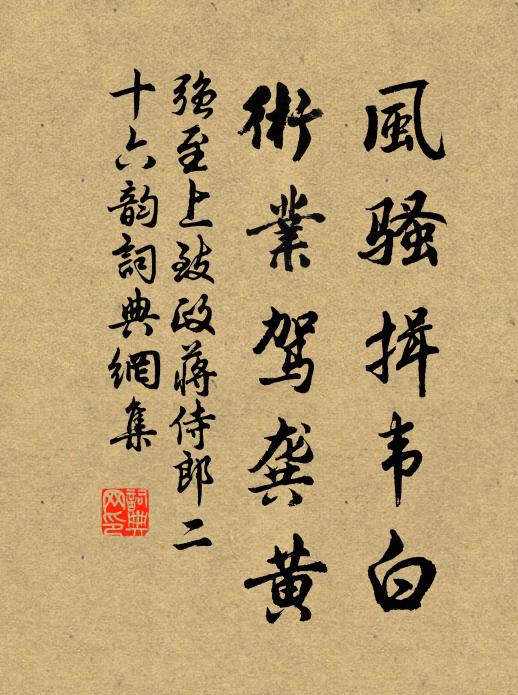 風騷揖韦白
術業駕龔黄
強至上致政蔣侍郎二
十六韵詞典網集
詞典
网印